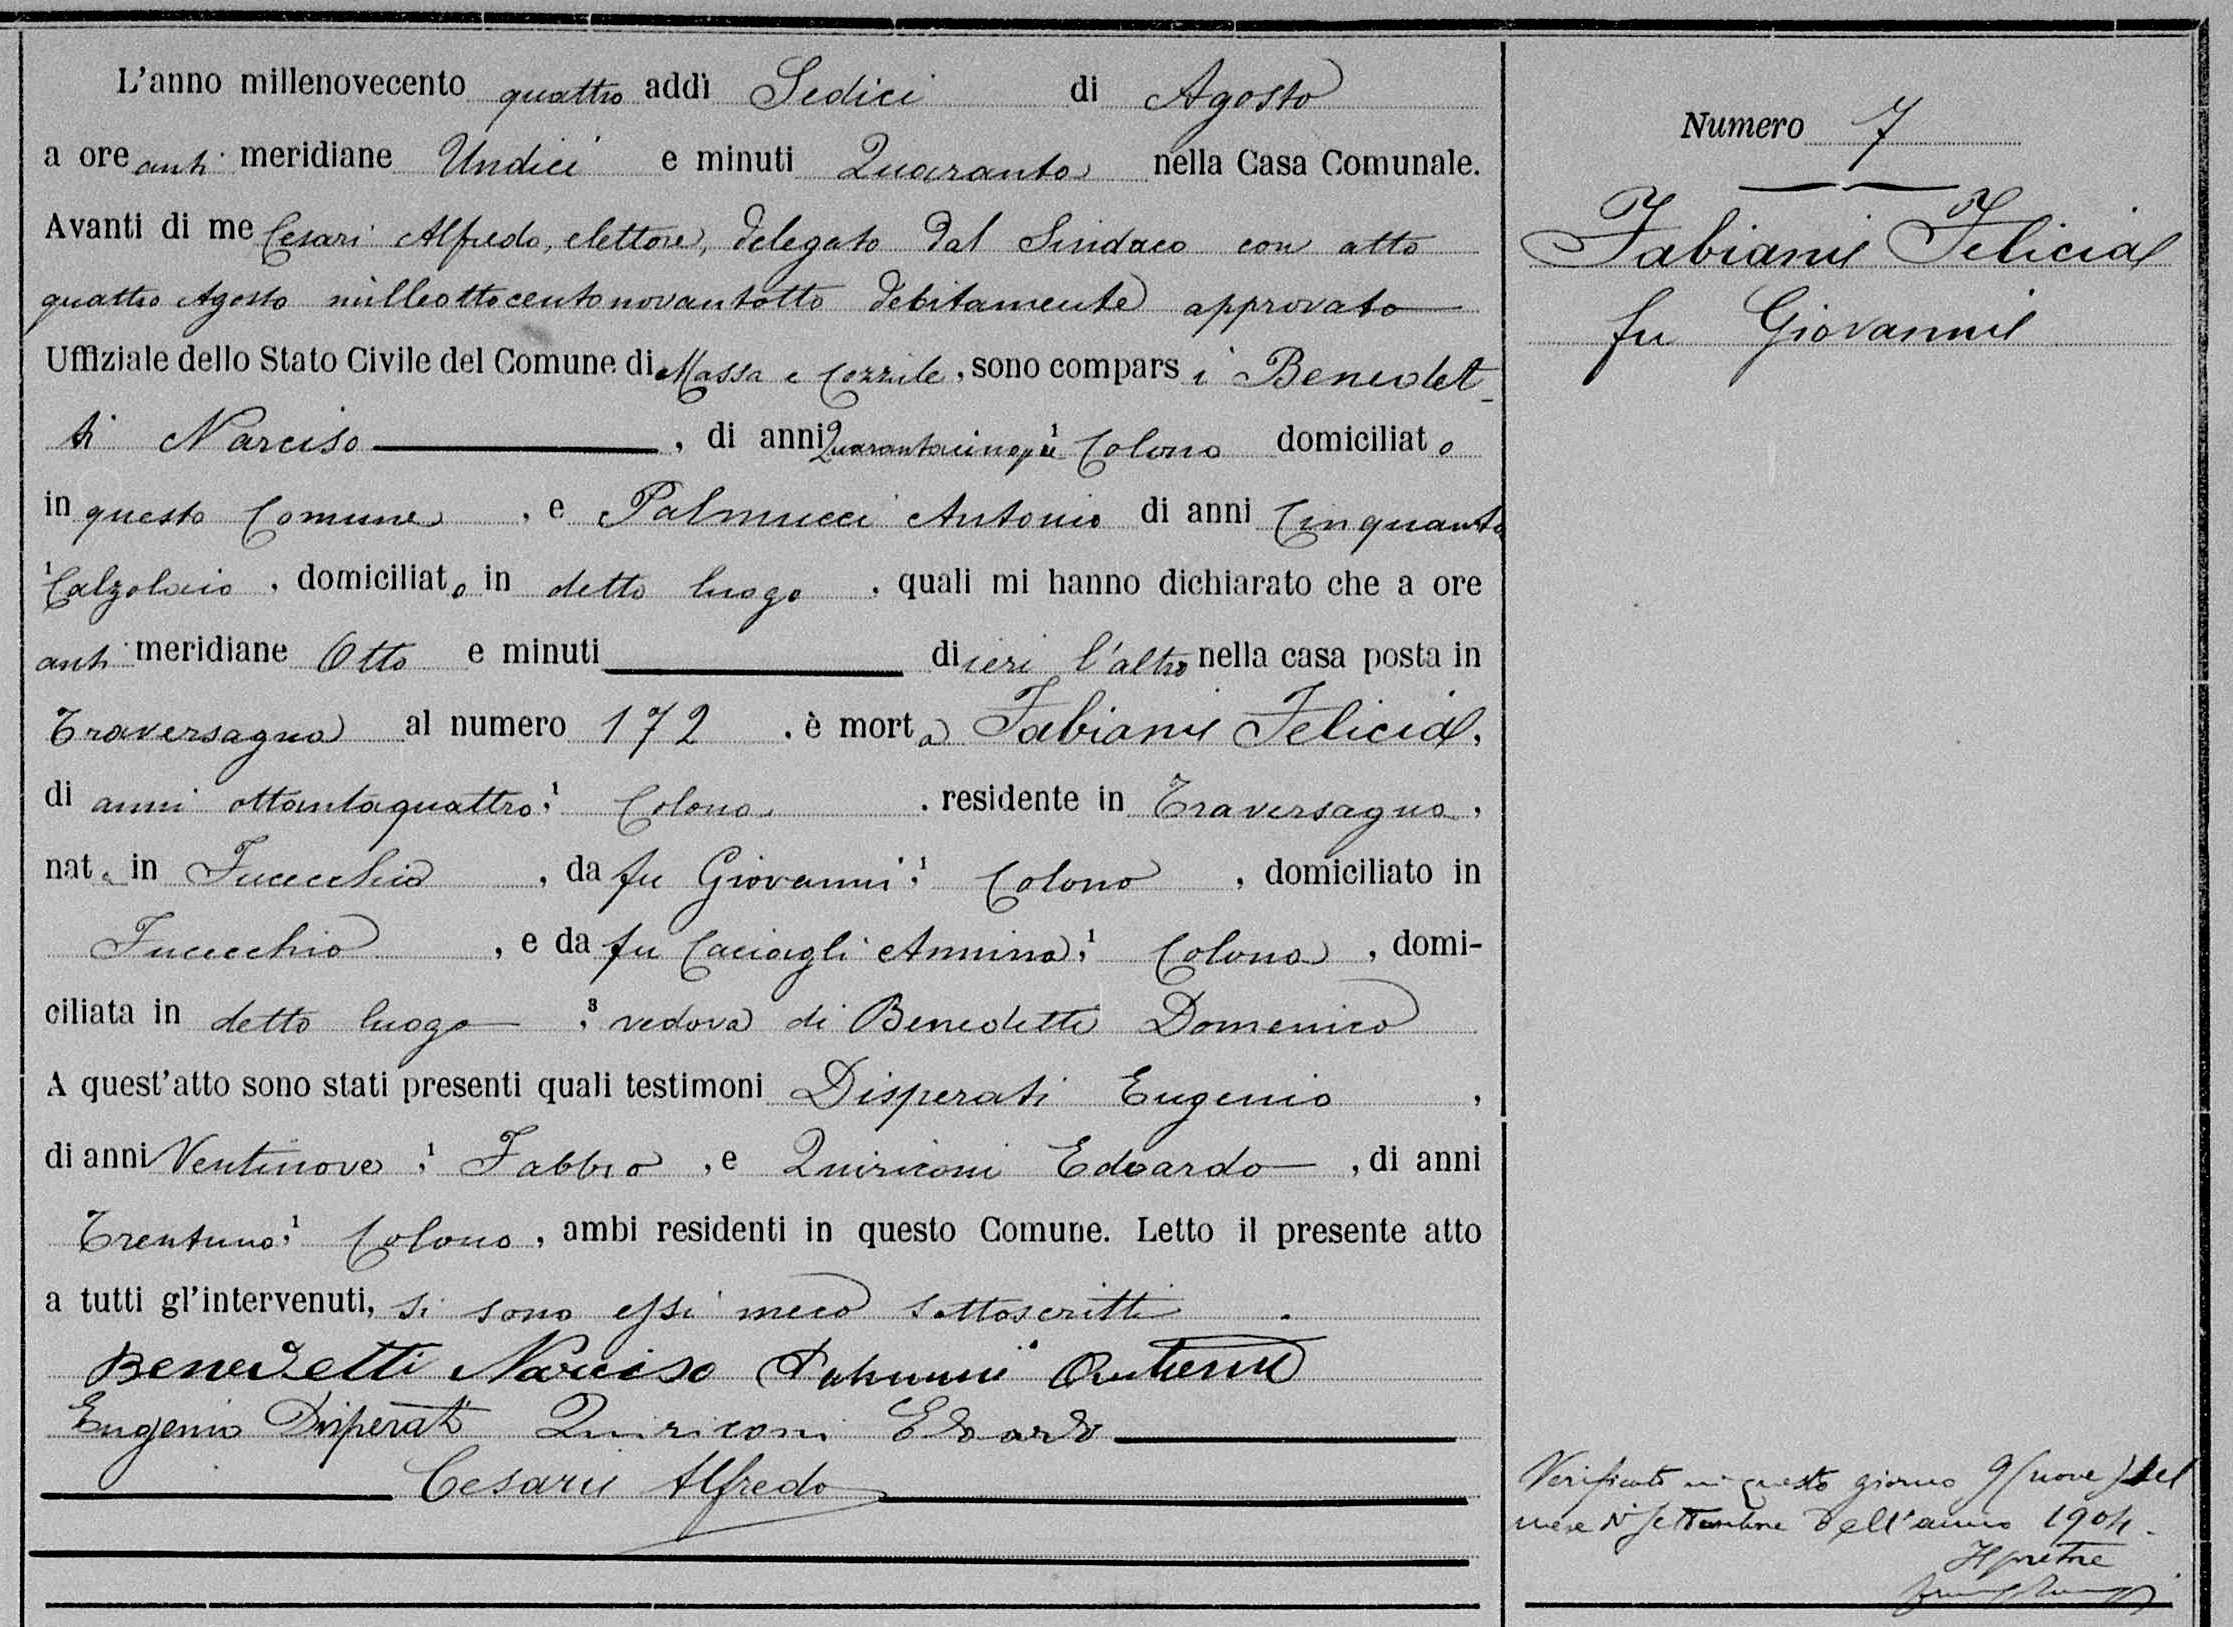 L'anno millenovecento quattro addì Sedici di Agosto
a ore anti meridiane Undici e minuti Quaranta nella Casa Comunale.
Avanti di me Cesari Alfredo, elettore, delegato dal Sindaco con atto
quattro Agosto milleottocentonovantotto debitamente approvato
Uffiziale dello Stato Civile del Comune di Massa e Cozzile, sono compars i Benedet-
ti Narciso, di anni Quarantacinque ¹ Colono domiciliato
in questo Comune, e Palmucci Antonio di anni Cinquanta
¹ Calzolaio, domiciliato in detto luogo, quali mi hanno dichiarato che a ore
anti meridiane Otto e minuti di ieri l'altro nella casa posta in
Traversagna al numero 172, è morta Fabiani Felicia,
di anni ottantaquattro, ¹ Colona, residente in Traversagna,
nata in Fucecchio, da fu Giovanni, ¹ Colono, domiciliato in
Fucecchio, e da fu Caciagli Annina, ¹ Colona, domi-
ciliata in detto luogo, ³ vedova di Benedetti Domenico
A quest'atto sono stati presenti quali testimoni Disperati Eugenio,
di anni Ventinove, ¹ Fabbro, e Quiriconi Edoardo, di anni
Trentuno, ¹ Colono, ambi residenti in questo Comune. Letto il presente atto
a tutti gl'intervenuti, si sono essi meco sottoscritti.
Benedetti Narciso
Eugenio Disperati Quiriconi Edoardo
Cesari Alfredo
Numero 7
Fabiani Felicia
fu Giovanni
Verificato in questo giorno 9 (nove) del
mese di Settembre dell'anno 1904.
Il pretore